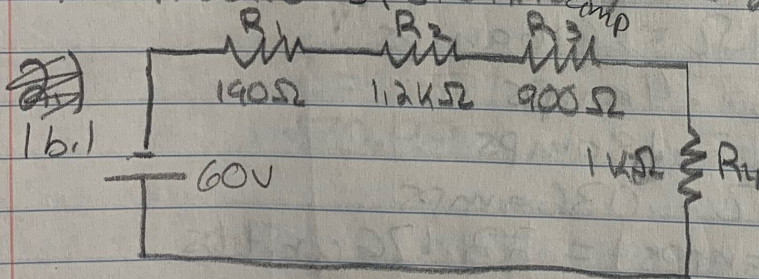 R1 R2 R3
190Ω 1.2KΩ 900Ω
16.1
60V
1KΩ R4